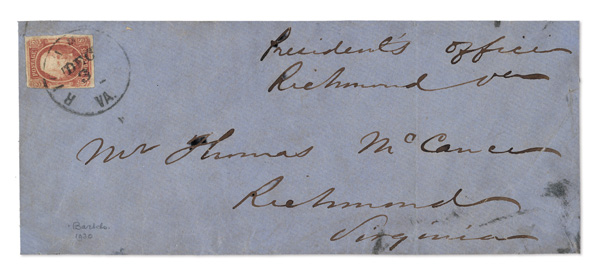 President's Office
Richmond Va
DEC
VA.
Mr Thomas McCance
Richmond
Virginia